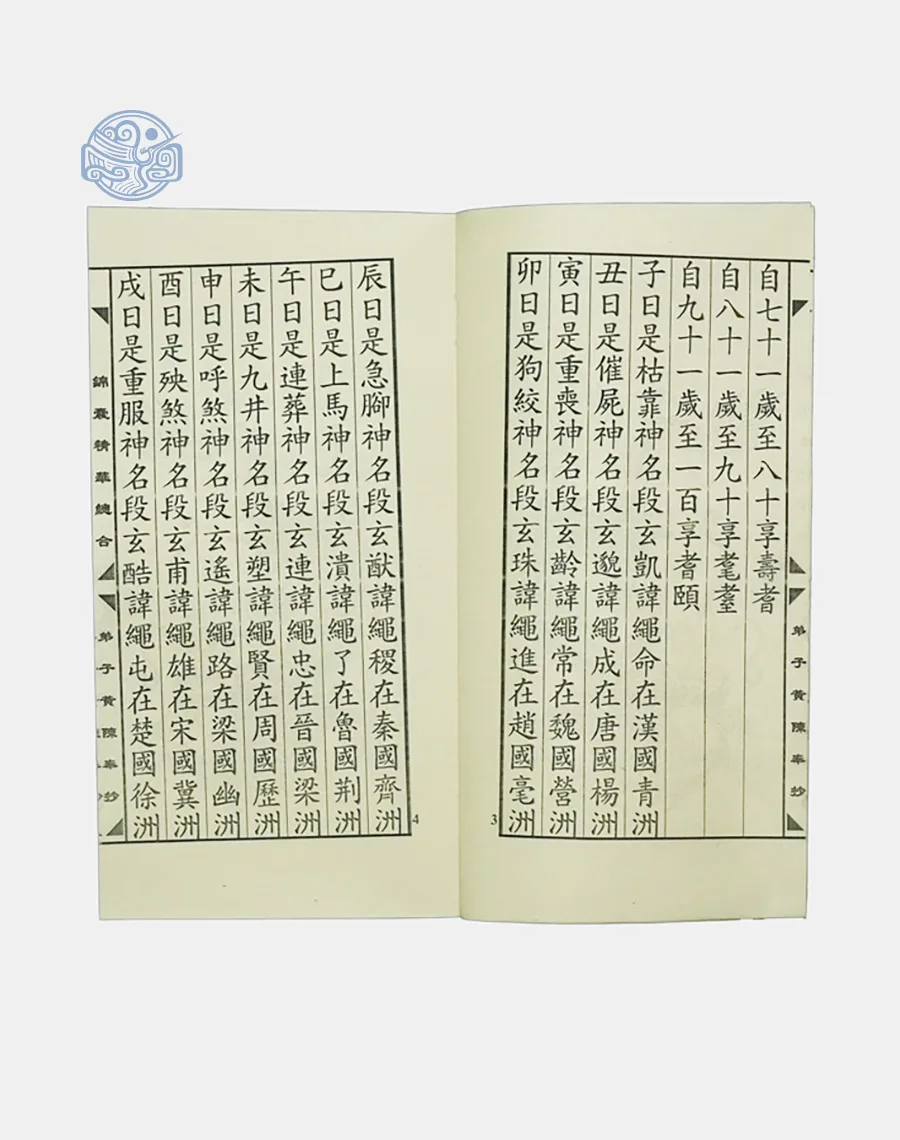 自七十一歲至八十享壽耆
自八十一歲至九十享耄耋
自九十一歲至一百享耆頤
子日是枯靠神名段玄凱諱繩命在漢國青洲
丑日是催屍神名段玄邈諱繩成在唐國楊洲
寅日是重喪神名段玄齡諱繩常在魏國營洲
卯日是狗絞神名段玄珠諱繩進在趙國毫洲
3
辰日是急腳神名段玄猷諱繩稷在秦國齊洲
巳日是上馬神名段玄潰諱繩了在魯國荆洲
午日是連葬神名段玄連諱繩忠在晉國梁洲
未日是九井神名段玄塑諱繩賢在周國歷洲
申日是呼煞神名段玄遙諱繩路在梁國幽洲
酉日是殃煞神名段玄甫諱繩雄在宋國冀洲
戌日是重服神名段玄酷諱繩屯在楚國徐洲
4
錦囊精華總合
弟子黃陳奉抄
弟子黃陳奉抄